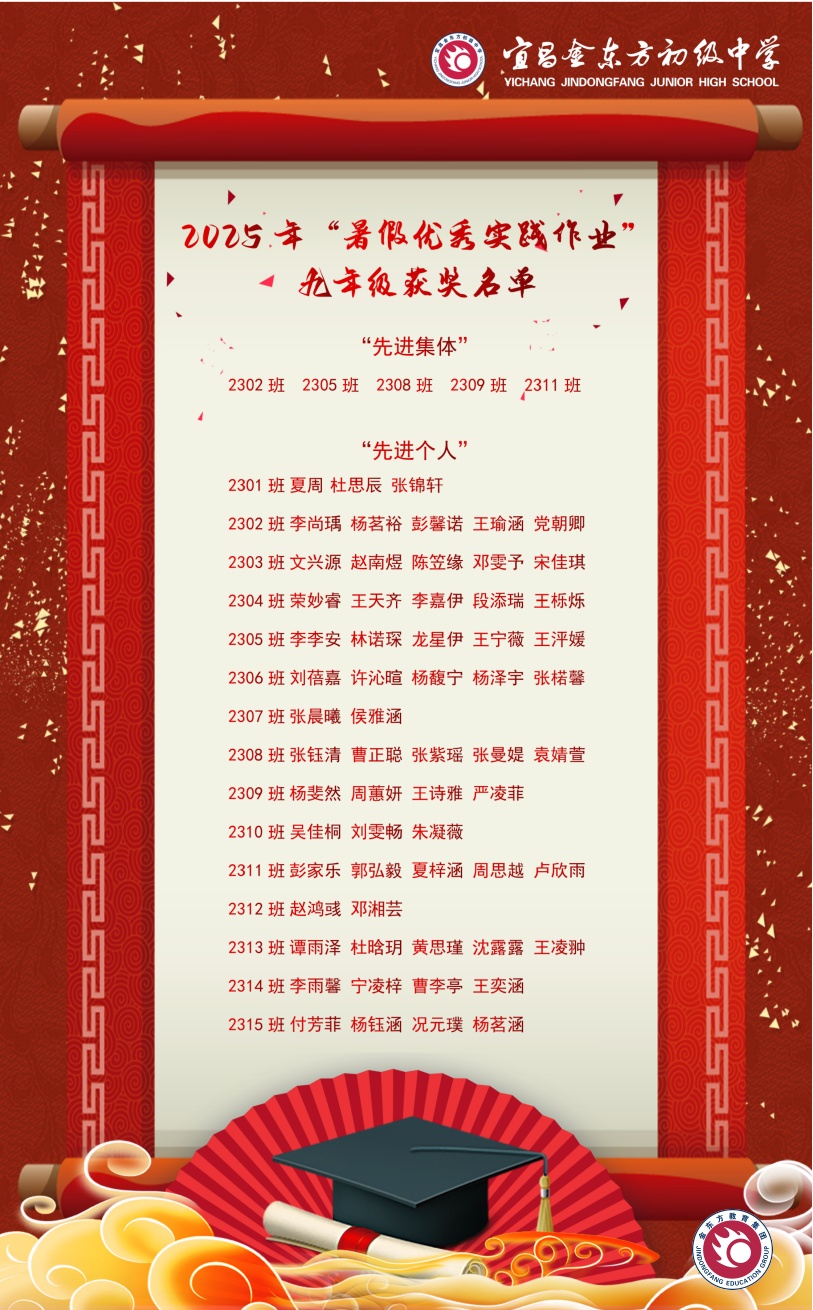 宜昌金东方初级中学
YICHANG JINDONGFANG JUNIOR HIGH SCHOOL
2025年“暑假优秀实践作业”
九年级获奖名单
“先进集体”
2302班 2305班 2308班 2309班 2311班
“先进个人”
2301班 夏周 杜思辰 张锦轩
2302班 李尚瑀 杨茗裕 彭馨诺 王瑜涵 党朝卿
2303班 文兴源 赵南煜 陈笠缘 邓雯予 宋佳琪
2304班 荣妙睿 王天齐 李嘉伊 段添瑞 王栎烁
2305班 李李安 林诺琛 龙星伊 王宁薇 王泙媛
2306班 刘蓓嘉 许沁暄 杨馥宁 杨泽宇 张楉馨
2307班 张晨曦 侯雅涵
2308班 张钰清 曹正聪 张紫瑶 张曼媞 袁婧萱
2309班 杨斐然 周蕙妍 王诗雅 严凌菲
2310班 吴佳桐 刘雯畅 朱凝薇
2311班 彭家乐 郭弘毅 夏梓涵 周思越 卢欣雨
2312班 赵鸿彧 邓湘芸
2313班 谭雨泽 杜晗玥 黄思瑾 沈露露 王凌翀
2314班 李雨馨 宁凌梓 曹李亭 王奕涵
2315班 付芳菲 杨钰涵 况元璞 杨茗涵
金东方教育集团
JINDONGFANG EDUCATION GROUP